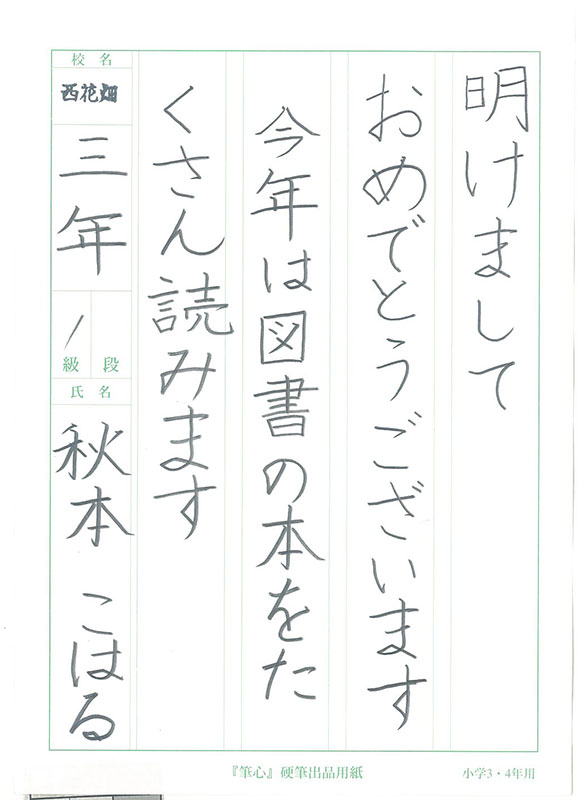 明けまして
おめでとうございます
今年は図書の本をた
くさん読みます
校名
西花畑
三年
1
級 段
氏名
秋本 こはる
『筆心』硬筆出品用紙
小学3・4年用